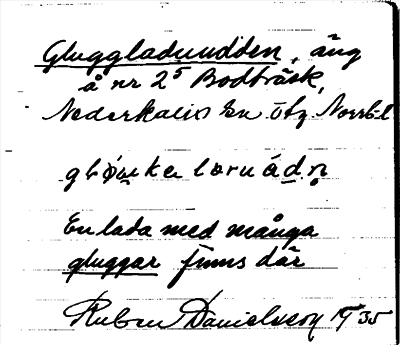 Gluggladuudden, äng
å nr 2⁵ Bodträsk,
Nederkalix sn ötg Norrb-l
En lada med många
gluggar finns där
Ruben Danielsson 19 35